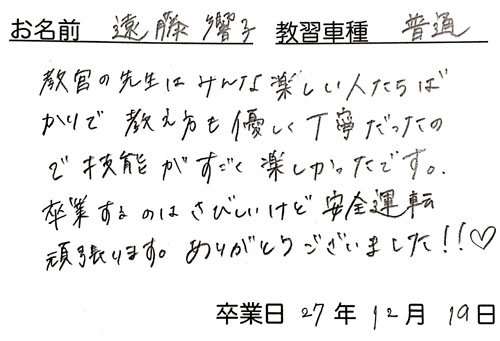 お名前 遠藤 響子 教習車種 普通
教官の先生は みんな楽しい人たちば
かりで 教え方も優しく丁寧だったの
で 技能がすごく楽しかったです。
卒業するのはさびしいけど 安全運転
頑張ります。ありがとうございました!!♡
卒業日 27年 12月 19日